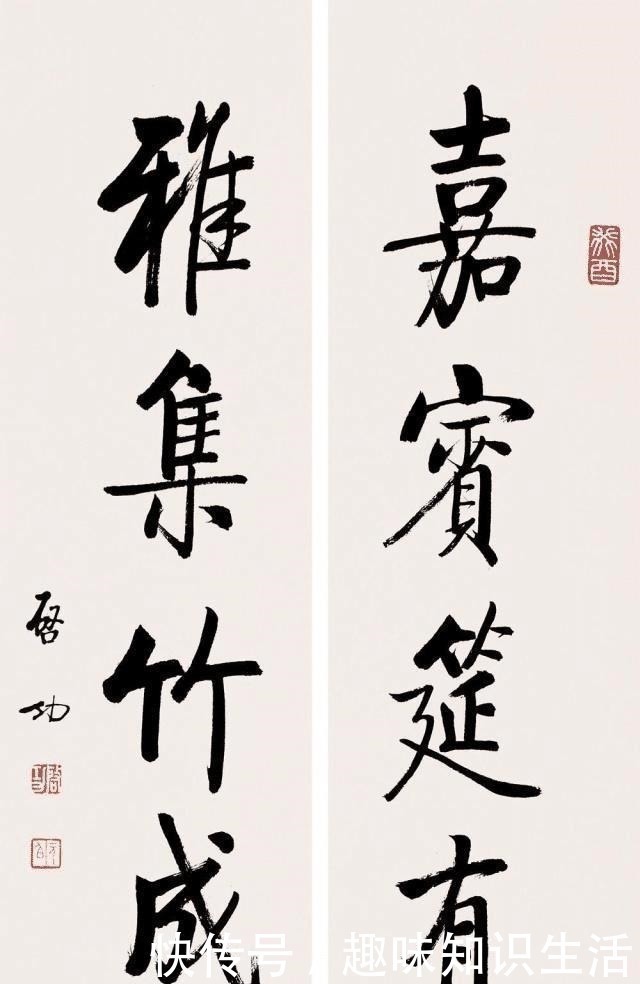 嘉賓筵有
雅集竹成
啓功
癸酉
快传号 / 趣味知识生活